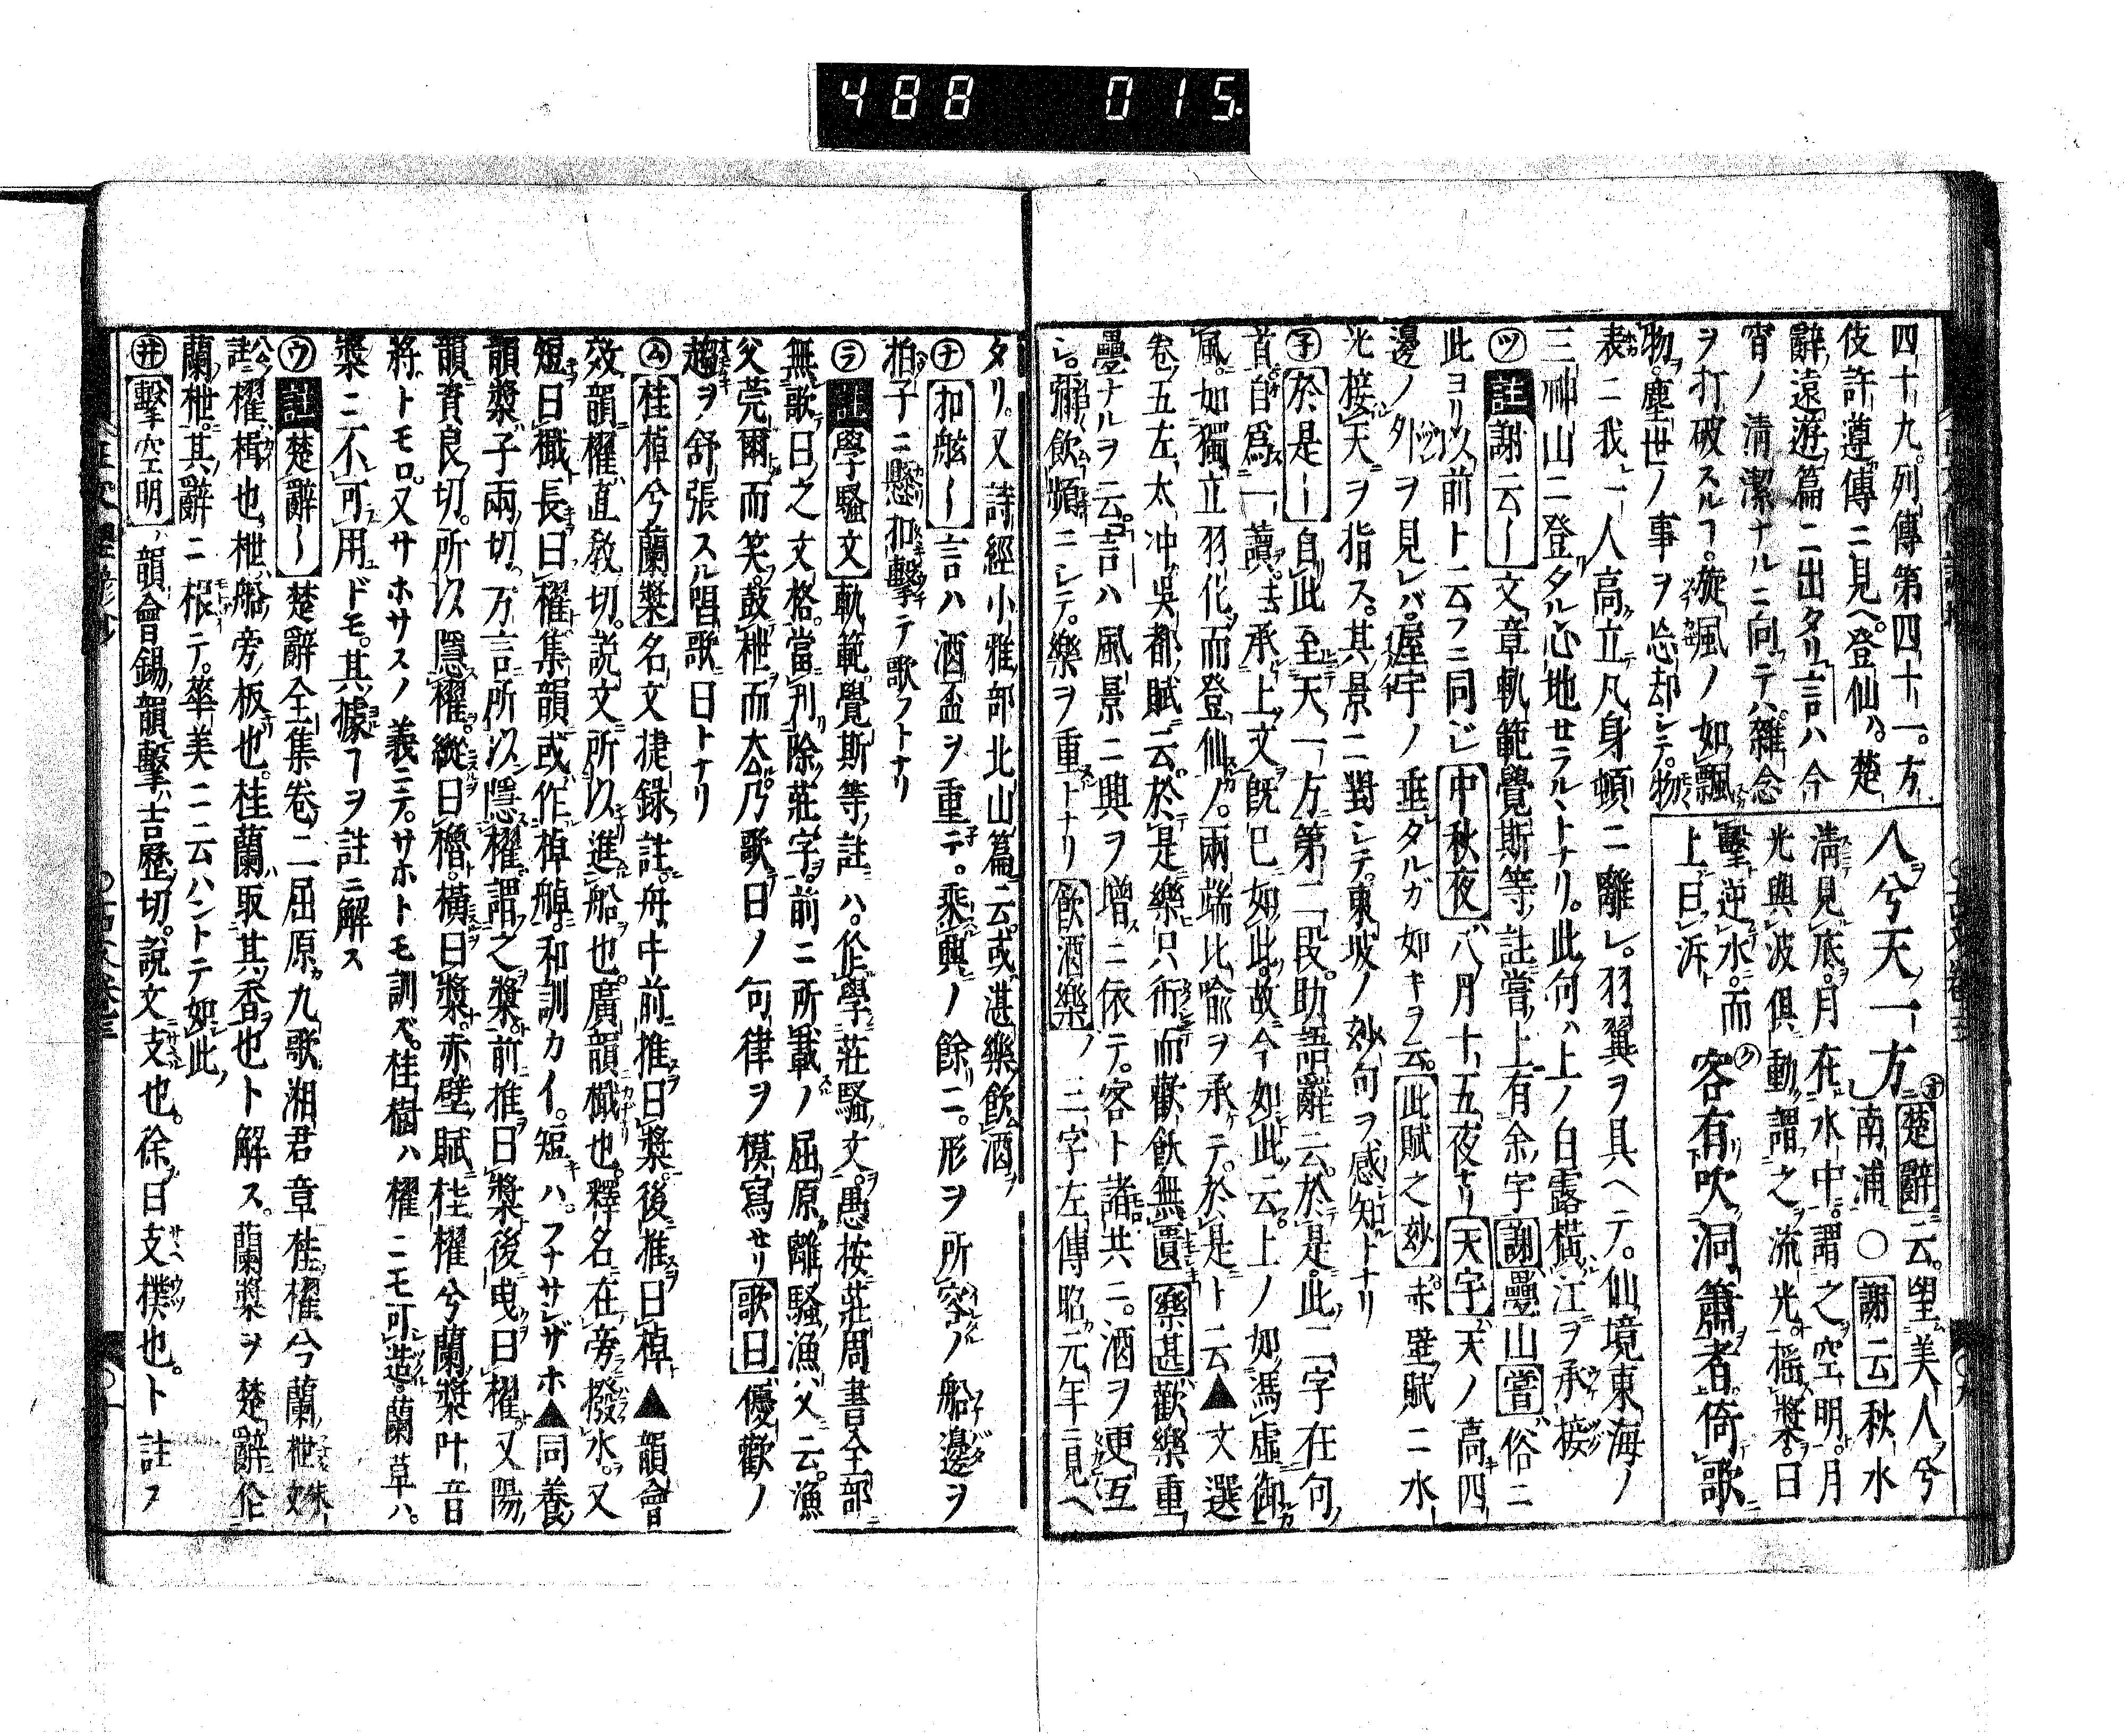 488 015.
四十九列傳第四十一方
伎許遵傳ニ見ヘ。登仙ハ。楚
辭遠遊篇ニ出タリ言ハ今
宵ノ清潔ナルニ向テハ雜念
ヲ打破スルヿ。旋風ノ如飄
物。塵世ノ事ヲ忘却シテ。物
人兮天一方 楚辭云。望美人兮
南浦 ○ 謝云秋水
清見底。月在水中。謂之空明。月
光與波俱動。謂之流光。搖槳。日
擊逆水。而
上曰泝
客有吹洞簫者倚歌
表ニ我一人高立凡身頓ニ離レ。羽翼ヲ具ヘテ。仙境東海ノ
三神山ニ登タル心地セラルヽトナリ。此句ハ上ノ白露橫江ヲ承接
ツ 註謝云〡文章軌範覺斯等註嘗上有余字謝疊山嘗俗ニ
此ヨリ以前ト云フニ同ジ中秋夜八月十五夜ナリ天宇天ノ高四
邊ノ外ヲ見レバ。屋宇ノ垂タルガ如キヲ云。此賦之妙赤壁賦ニ水
光接天ヲ指ス。其景ニ對シテ。東坡ノ妙句ヲ感知トナリ
於是〡自此至天一方第二段。助語辭云。於是。此二字在句
首。自爲一讀。承上文既已如此。故今如此云上ノ如馮虛御
風。如獨立羽化而登仙ノ。兩端比喩ヲ承テ。於是ト云▲文選
卷五左太冲吳都賦云。於是樂只衎而歡飫無匱樂甚歡樂重
疊ナルヲ云。言ハ風景ニ興ヲ增ニ依テ。客ト諸共ニ。酒ヲ更互
シ。彌飲頻ニシテ。樂ヲ重トナリ飲酒樂ノ三字左傳昭元年ニ見ヘ
タリ。又詩經小雅部北山篇云。或湛樂飲酒
ナ 扣舷〡言ハ酒盃ヲ重テ。乘興ノ餘ニ。形ヲ所容ノ船邊ヲ
拍子ニ懸扣擊テ歌フトナリ
ラ 註學騷文軌範覺斯等註ハ。作學莊騷文。愚按莊周書全部
無歌曰之文格。當刊除莊字。前ニ所載ノ屈原離騷漁父云。漁
父莞爾而笑。鼓枻而去乃歌曰ノ句律ヲ模寫セリ歌曰優歡ノ
趣ヲ舒張スル唱歌曰トナリ
ム 桂棹兮蘭槳名文捷録註。舟中前推曰槳。後推曰棹▲韻會
效韻櫂直敎切。說文所以進船也。廣韻檝也。釋名在旁撥水。又
短曰檝長曰櫂集韻或作棹䑲。和訓カイ。短キハ。フナサシザホ▲同養
韻槳子兩切。方言所以隱櫂謂之槳。前推曰槳後曳曰櫂又陽
韻資良切。所以隱櫂。縱曰櫓。橫曰槳。赤壁賦桂櫂兮蘭槳叶音
將トモロ。又サホサスノ義ニテ。サホトモ訓ベ。桂樹ハ櫂ニモ可造。蘭草ハ。
槳ニ不可用ドモ。其據ヿヲ註ニ解ス
ウ 註楚辭〡楚辭全集卷二屈原九歌湘君章桂櫂兮蘭枻
註櫂楫也枻船旁板也。桂蘭取其香也ト解ス。蘭槳ヲ楚辭作
蘭枻。其辭ニ根テ。華美ニ云ハントテ如此
井 擊空明韻會錫韻擊吉歷切。說文支也。徐曰支撲也。ト註ス